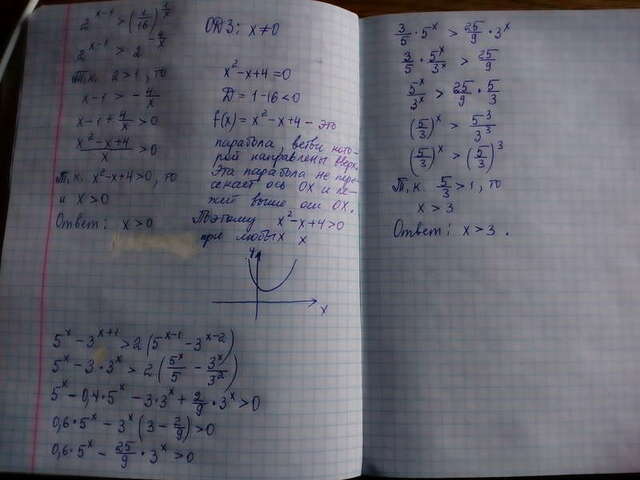 2^(x-1) > (1/16)^(1/x)
2^(x-1) > 2^(-4/x)
Т.к. 2 > 1, то
x-1 > -4/x
x-1+4/x > 0
(x²-x+4)/x > 0
Т.к. x²-x+4>0, то
и x > 0
Ответ: x > 0
ОДЗ: x ≠ 0
x²-x+4=0
D = 1-16 < 0
f(x) = x²-x+4 - это
парабола ветви кото-
рой направлены вверх.
Эта парабола не пере-
секает ось OX и ле-
жит выше оси OX.
Поэтому x²-x+4>0
при любых x
y
x
5^x - 3^(x+1) > 2(5^(x-1) - 3^(x-2))
5^x - 3·3^x > 2(5^x/5 - 3^x/3²)
5^x - 0,4·5^x - 3·3^x + 2/9·3^x > 0
0,6·5^x - 3^x(3 - 2/9) > 0
0,6·5^x - 25/9·3^x > 0
3/5·5^x > 25/9·3^x
3/5·5^x/3^x > 25/9
5^x/3^x > 25/9·5/3
(5/3)^x > 5³/3³
(5/3)^x > (5/3)³
Т.к. 5/3 > 1, то
x > 3
Ответ: x > 3.